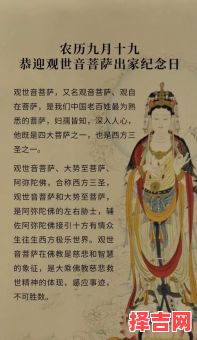 农历九月十九
恭迎观世音菩萨出家纪念日
观世音菩萨，又名观音菩萨、观自
在菩萨，是我们中国老百姓最为熟
悉的菩萨，妇孺皆知，深入人心，
他既是四大菩萨之一，也是西方三
圣之一。
观世音菩萨、大势至菩萨、
阿弥陀佛，合称西方三圣，
观世音菩萨和大势至菩萨，
是阿弥陀佛的左右胁士，辅
佐阿弥陀佛接引十方有情众
生往生西方极乐世界。观世
音菩萨在佛教是慈悲和智慧
的象征，是大乘佛教慈悲救
世精神的体现，感应事迹，
不可胜数。
择吉网